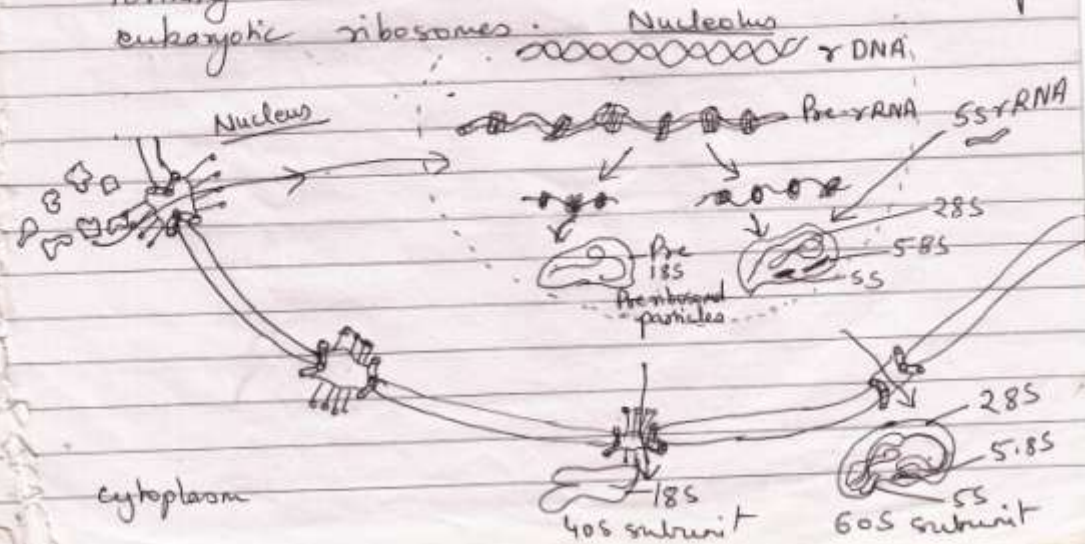 eukaryotic ribosomes.
Nucleolus
r DNA
Nucleus
Pre-rRNA
5S rRNA
28S
5.8S
5S
Pre
18S
Preribosomal
particles
28S
5.8S
5S
18S
cytoplasm
40S subunit
60S subunit